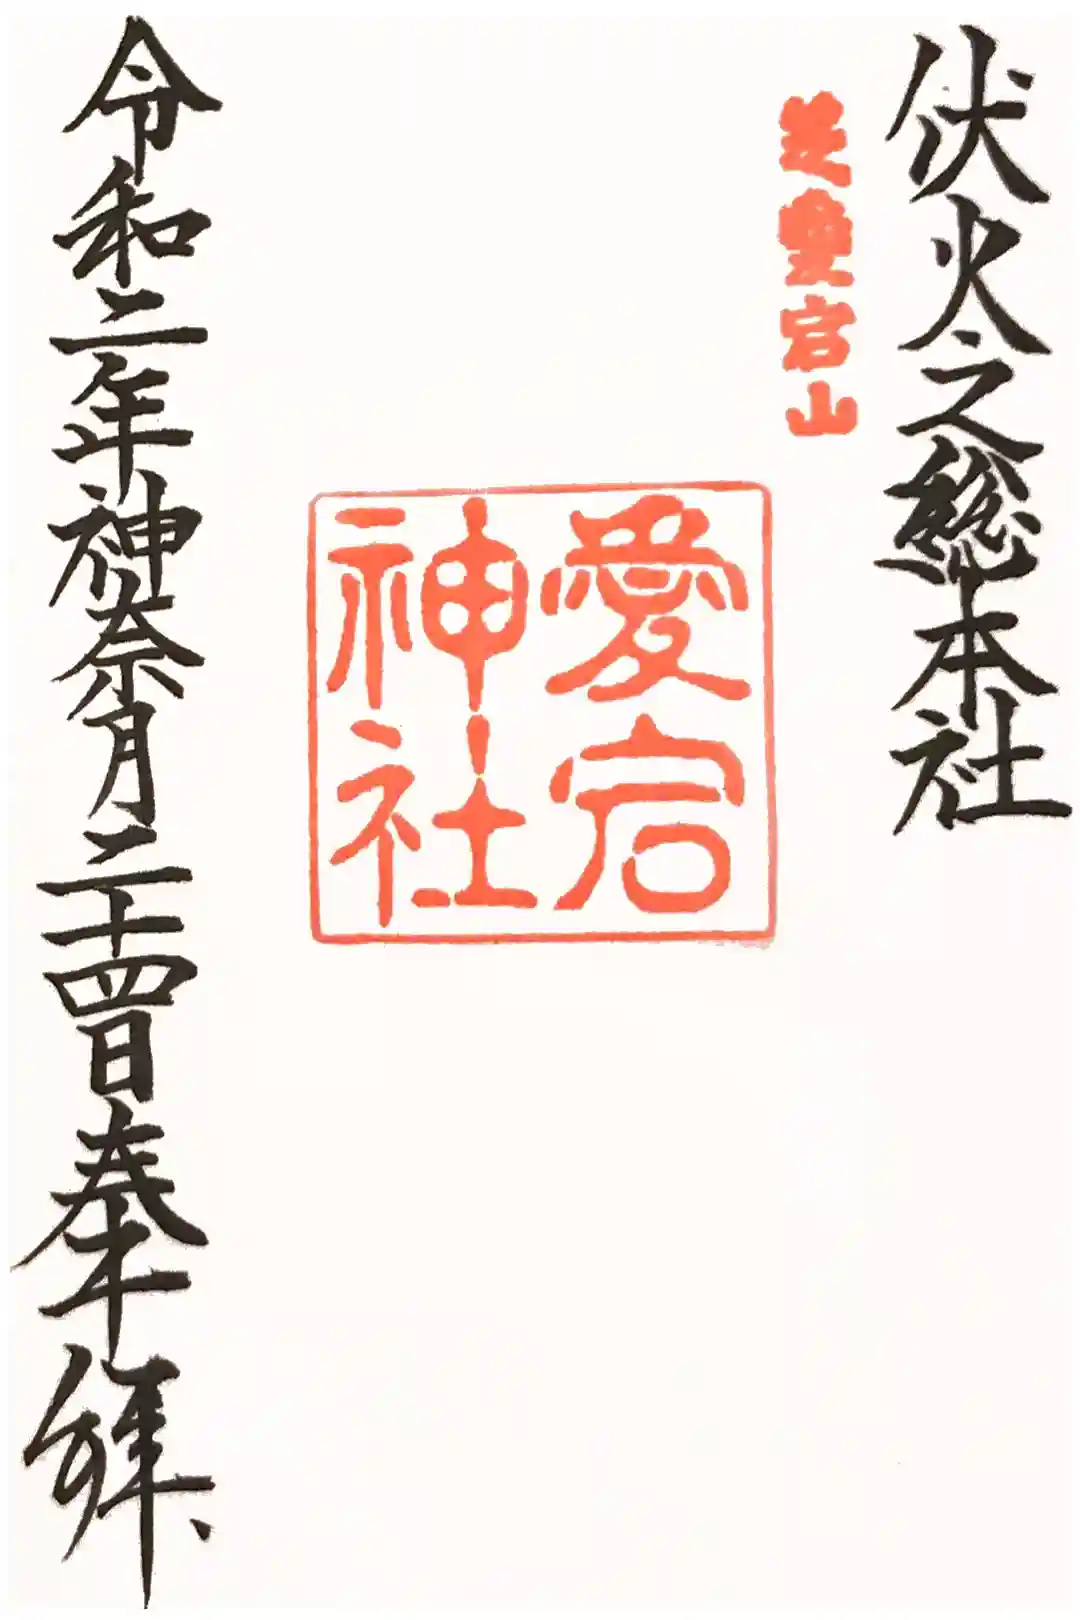 伏火之総本社
芝愛宕山
愛宕
神社
令和二年神奈月二十四日奉拝